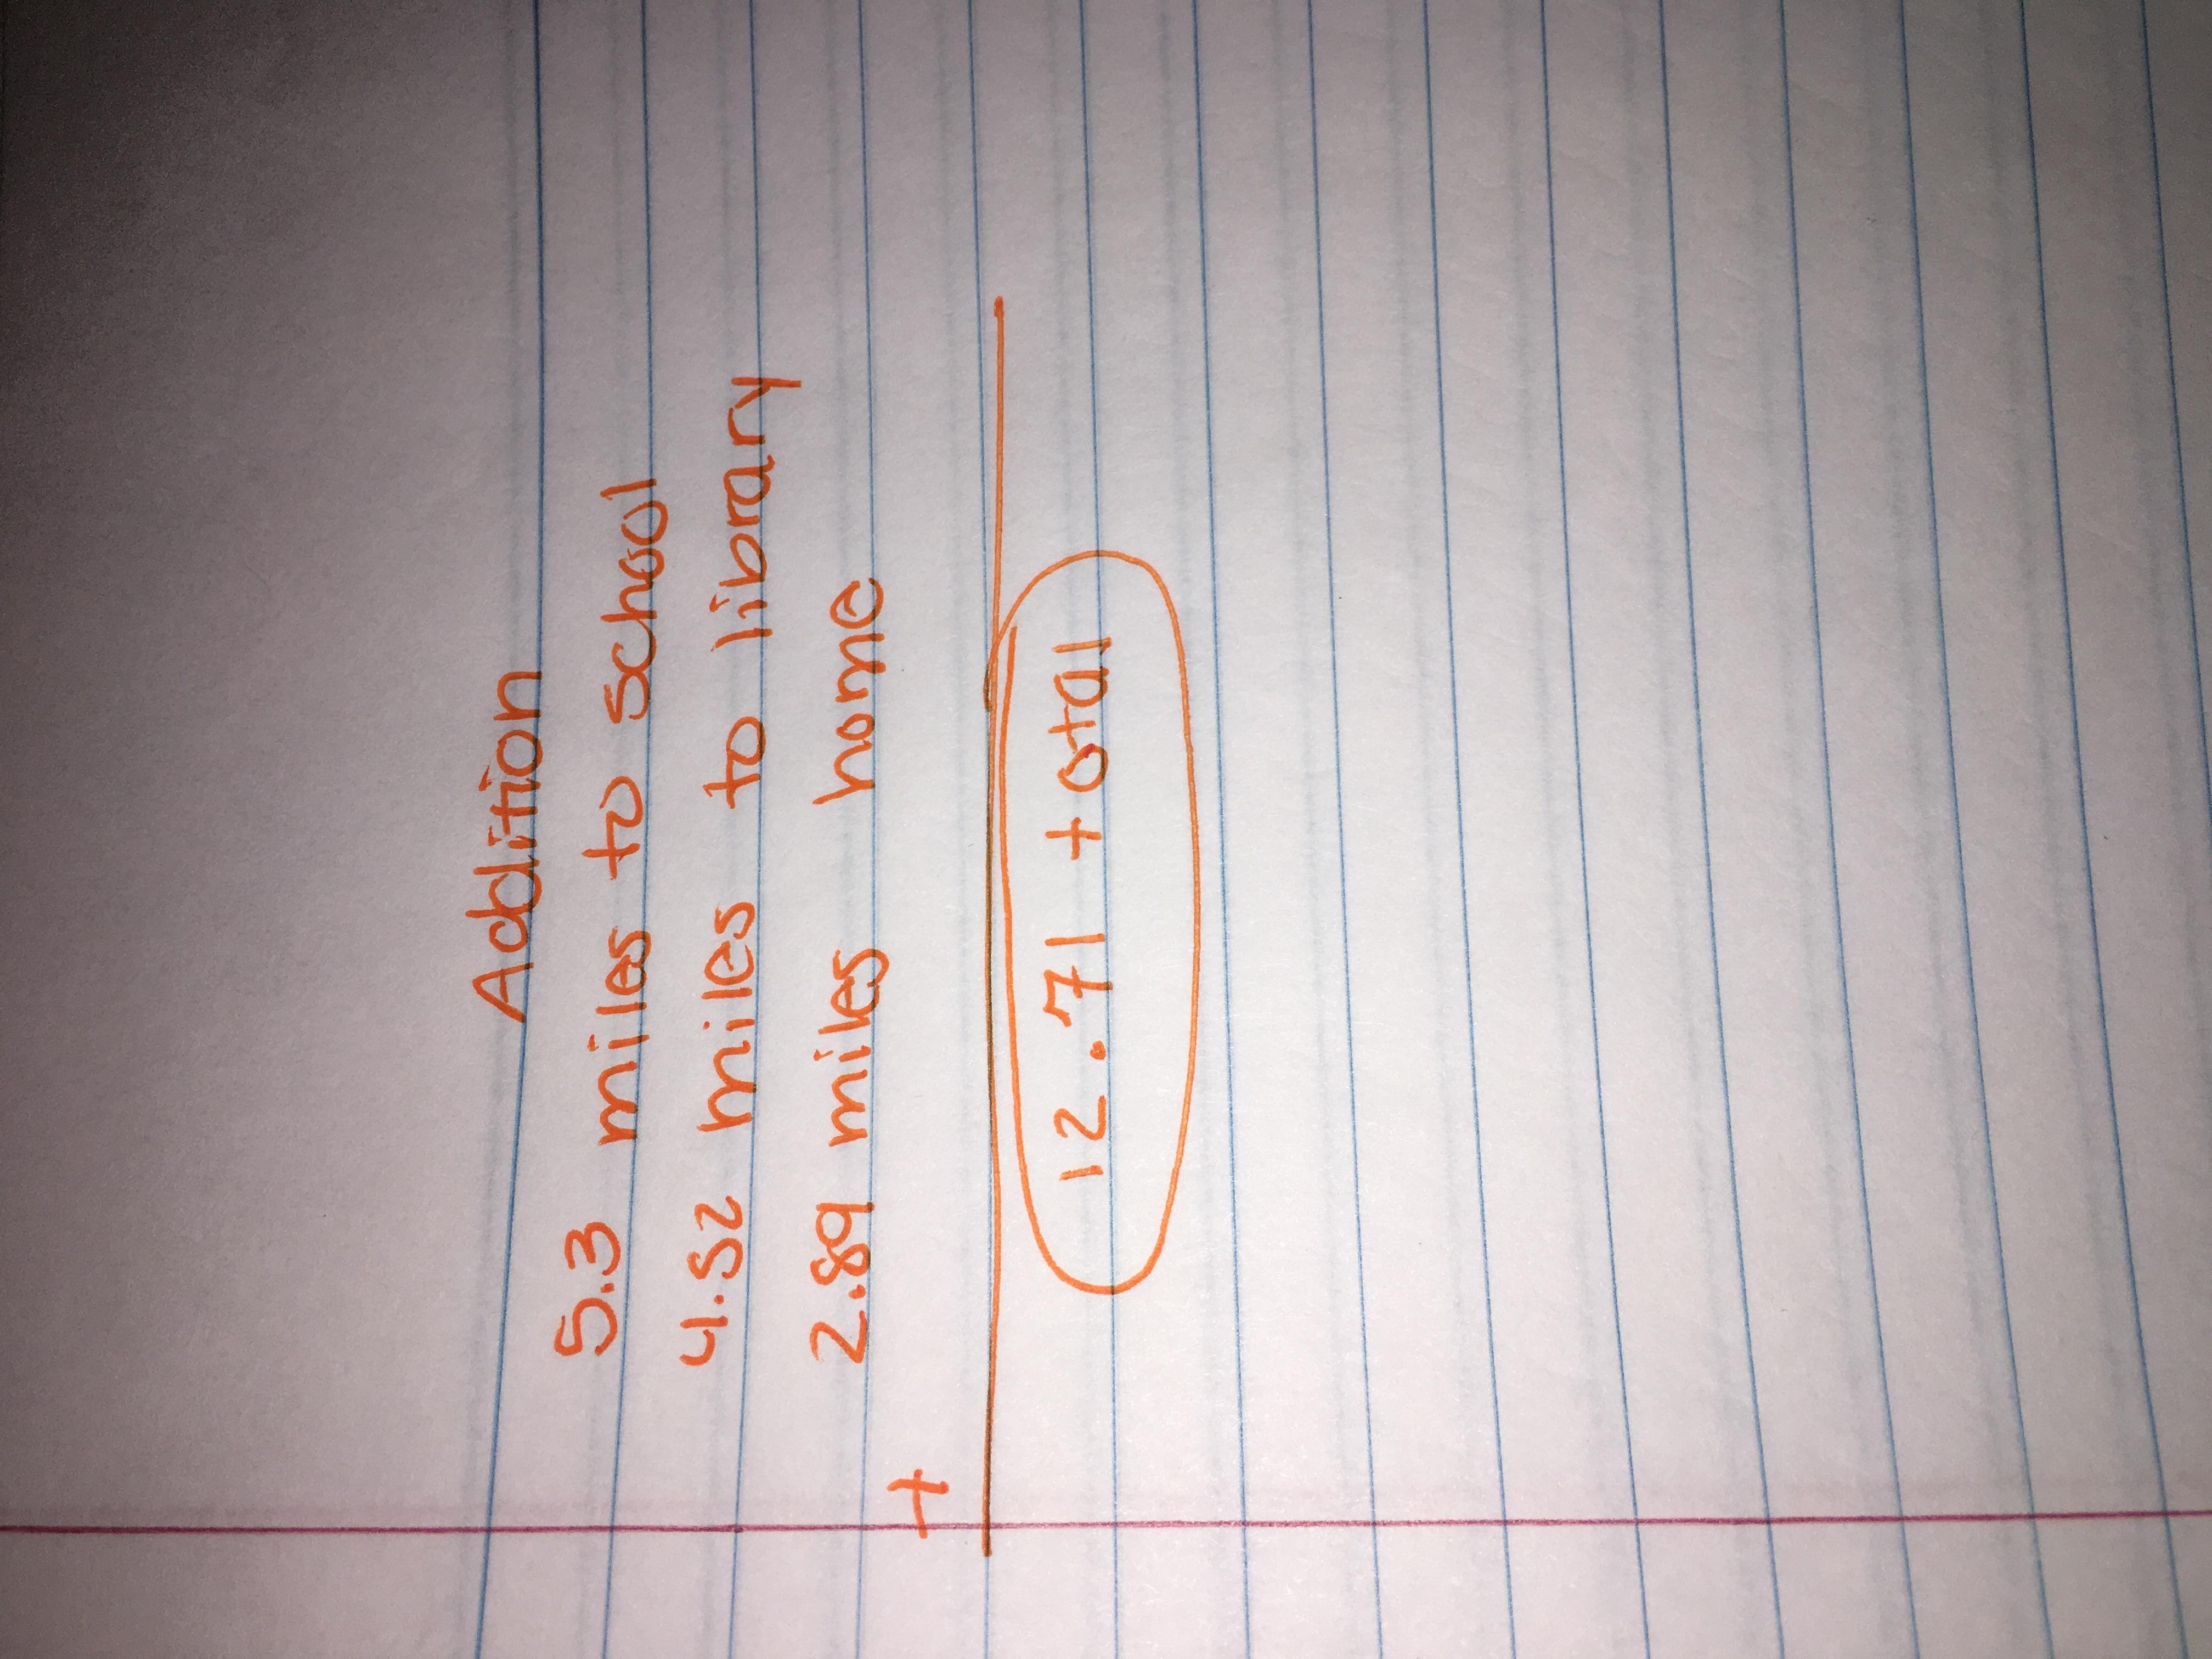 Addition
5.3 miles to school
4.52 miles to library
2.89 miles home
+
12.71 total